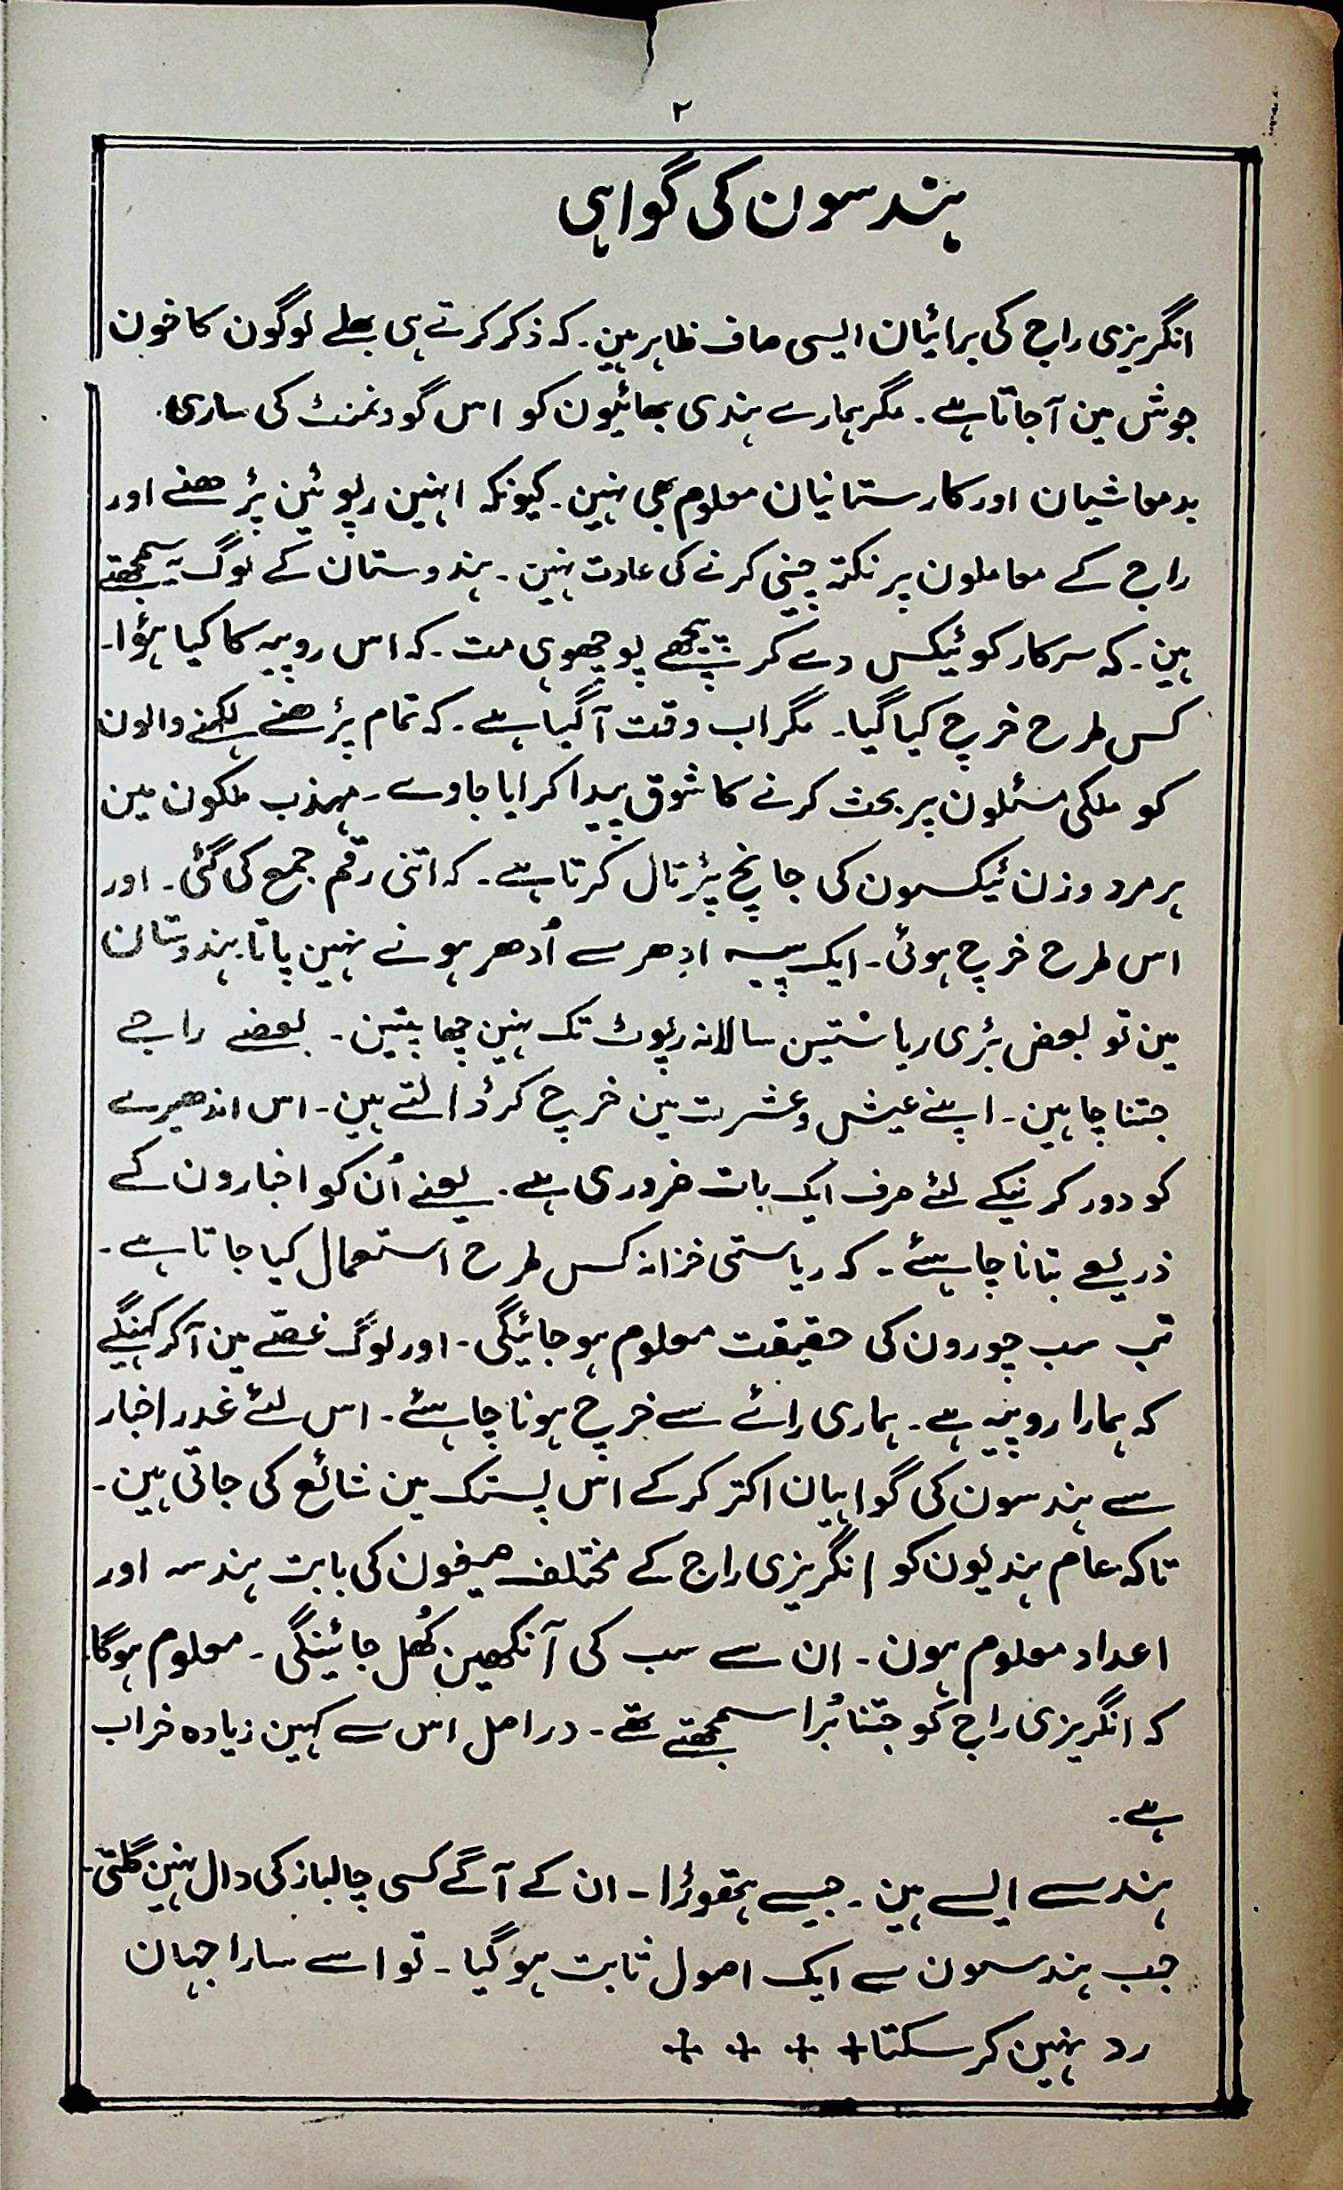 ۲
ہندسون کی گواہی
انگریزی راج کی برائیان ایسی صاف ظاہر ہین۔ کہ ذکر کرتے ہی بھلے لوگون کا خون
جوش مین آجاتا ہے۔ مگر ہمارے ہندی بھائیون کو اس گورنمنٹ کی ساری
بدمعاشیان اور کارستانیان معلوم بھی نہین۔ کیونکہ اہنین رپوٹین پڑھنے اور
راج کے معاملون پر نکتہ چینی کرنے کی عادت نہین۔ ہندوستان کے لوگ یہ سمجھتے
ہین۔ کہ سرکار کو ٹیکس دے کر پیچھے پوچھو ہی مت۔ کہ اس روپیہ کا کیا ہؤا۔
کس طرح خرچ کیا گیا۔ مگر اب وقت آگیا ہے۔ کہ تمام پڑھنے لکہنے والون
کو ملکی مسئلون پر بحث کرنے کا شوق پیدا کرایا جاوے۔ مہذب ملکون مین
ہر مرد و زن ٹیکسون کی جانچ پڑتال کرتا ہے۔ کہ اتنی رقم جمع کی گئی۔ اور
اس طرح خرچ ہوئی۔ ایک پیسہ ادِھر سے اُدھر ہونے نہین پاتا۔ ہندوستان
مین تو بعض بڑی ریاستین سالانہ رپوٹ تک نہین چھاپتین۔ بعضے راجے
جتنا چاہین۔ اپنے عیش و عشرت مین خرچ کر ڈالتے ہین۔ اس اندھیرے
کو دور کرنیکے لئے صرف ایک بات ضروری ہے۔ یعنے اُن کو اخبارون کے
ذریعے بتانا چاہئے۔ کہ ریاستی خزانہ کس طرح استعمال کیا جاتا ہے۔
تب سب چورون کی حقیقت معلوم ہو جائیگی۔ اور لوگ غصّے مین آکر کہنیگے
کہ ہمارا روپیہ ہے۔ ہماری رائے سے خرچ ہونا چاہئے۔ اس لئے غدر اخبار
سے ہندسون کی گواہیان اکتر کرکے اس پستک مین شائع کی جاتی ہین۔
تاکہ عام ہندیون کو انگریزی راج کے مختلف صیغون کی بابت ہندسہ اور
اعداد معلوم ہون۔ ان سے سب کی آنکھین کُھل جائینگی۔ معلوم ہوگا۔
کہ انگریزی راج کو جتنا بُرا سمجھتے تھے۔ دراصل اس سے کہین زیادہ خراب
ہے۔
ہندسے ایسے ہین۔ جیسے ہتھوڑا۔ ان کے آگے کسی چالباز کی دال نہین گلتی۔
جب ہندسون سے ایک اصول ثابت ہو گیا۔ تو اسے سارا جہان
رد نہین کر سکتا + + + +